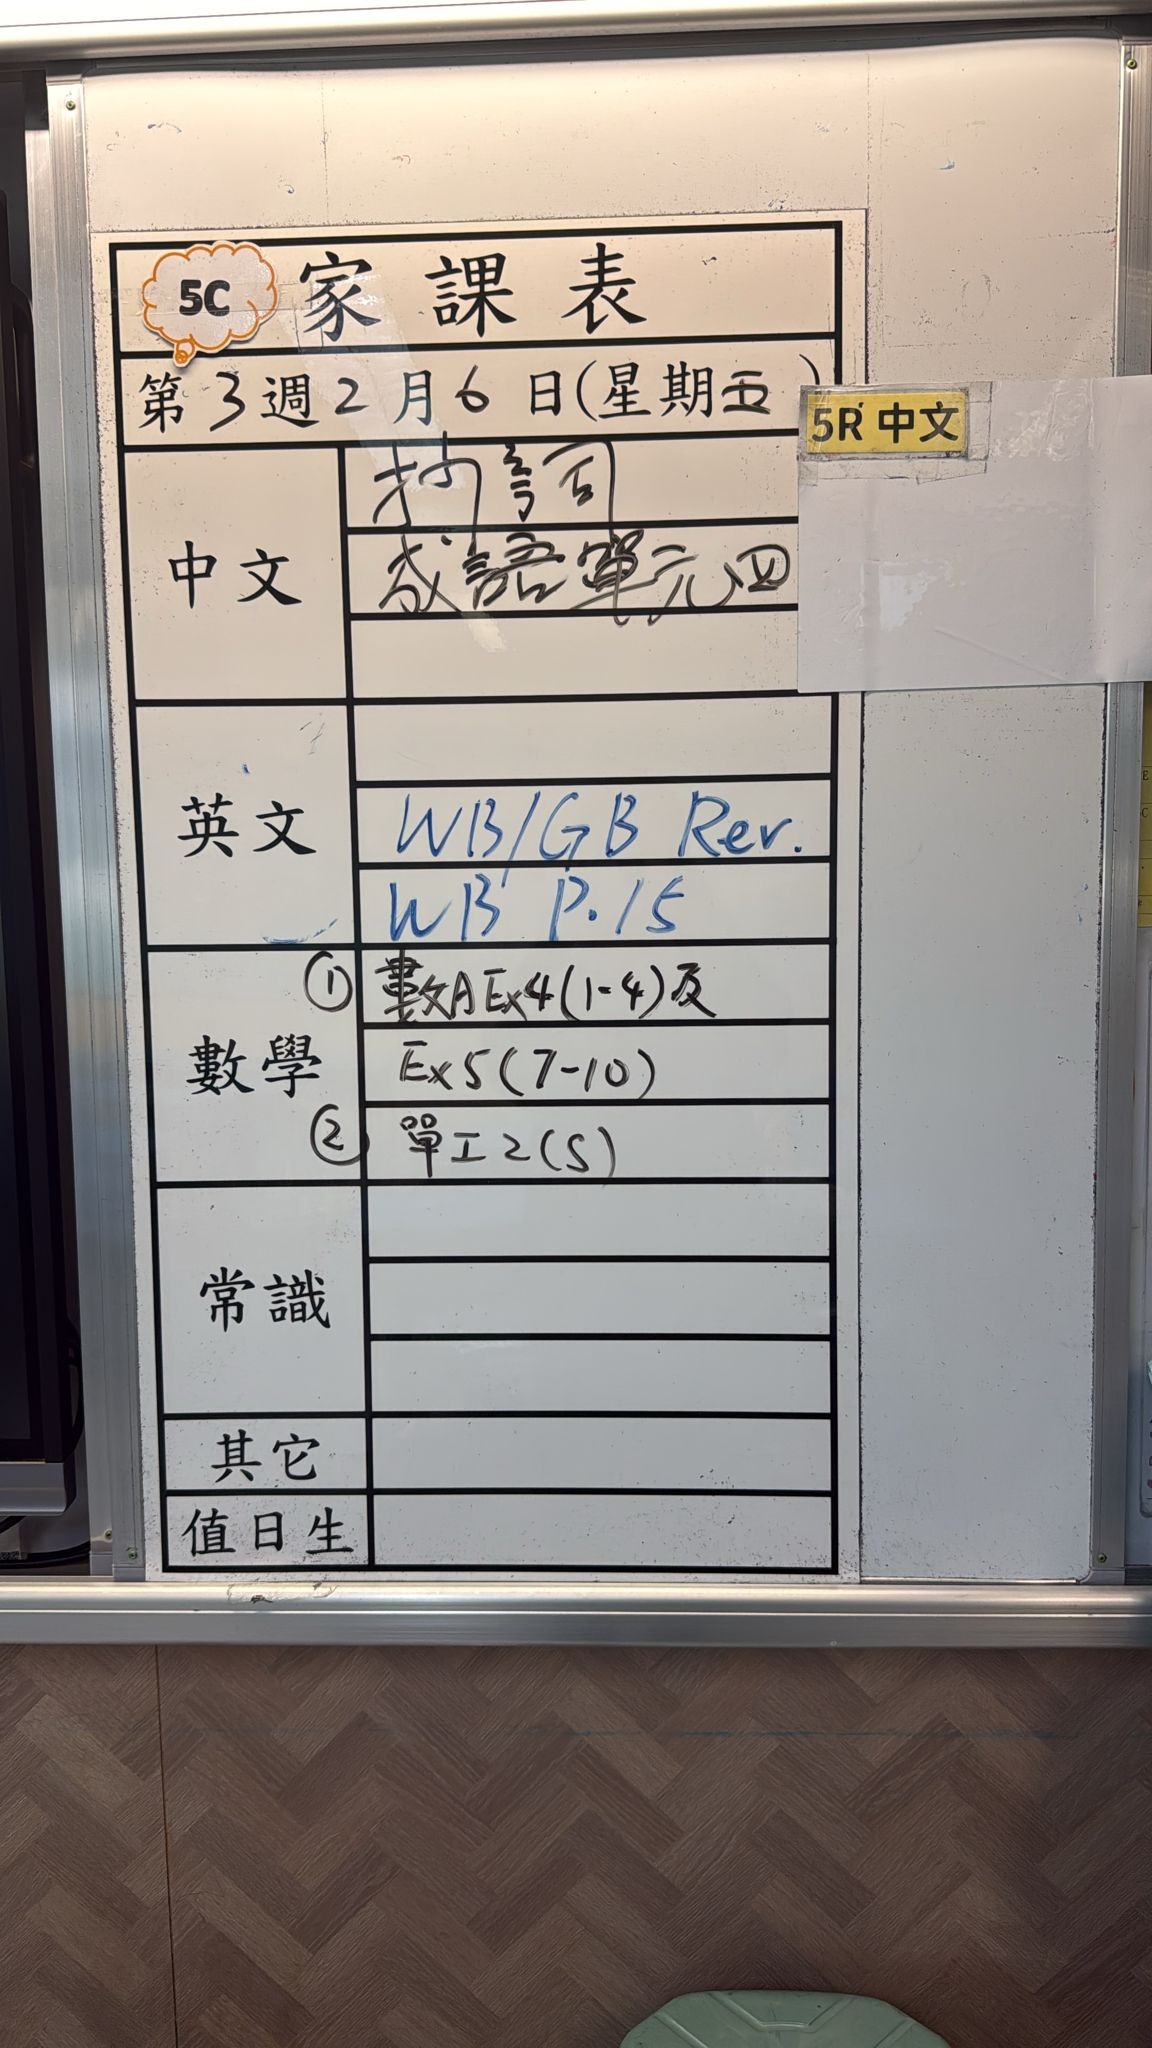 5C 家課表
第3週2月6日(星期五)
5R 中文
中文
抄詞
成語單元四
英文
WB/GB Rev.
WB P.15
數學
① 數A Ex4(1-4)及
Ex5(7-10)
② 單工2(S)
常識
其它
值日生